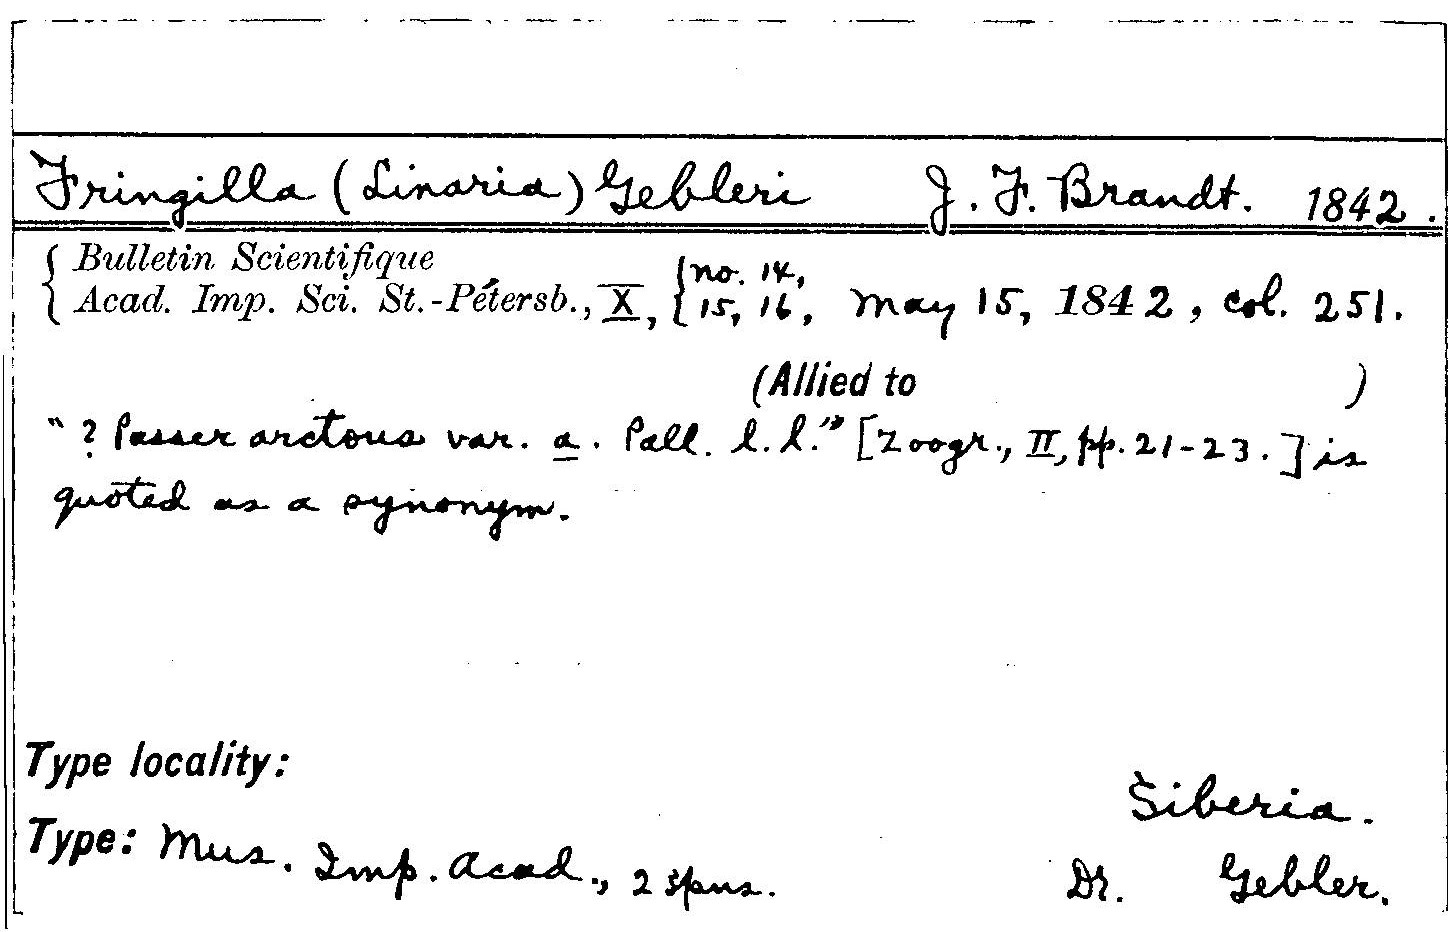 Fringilla (Linaria) Gebleri J. F. Brandt. 1842.
Bulletin Scientifique
Acad. Imp. Sci. St.-Pétersb., X, {no. 14, 15, 16, May 15, 1842, col. 251.
(Allied to )
"? Passer arctous var. a. Pall. l. l." [Zoogr., II, pp. 21-23.] is
quoted as a synonym.
Type locality:
Siberia.
Type: Mus. Imp. Acad., 2 spns. Dr. Gebler.